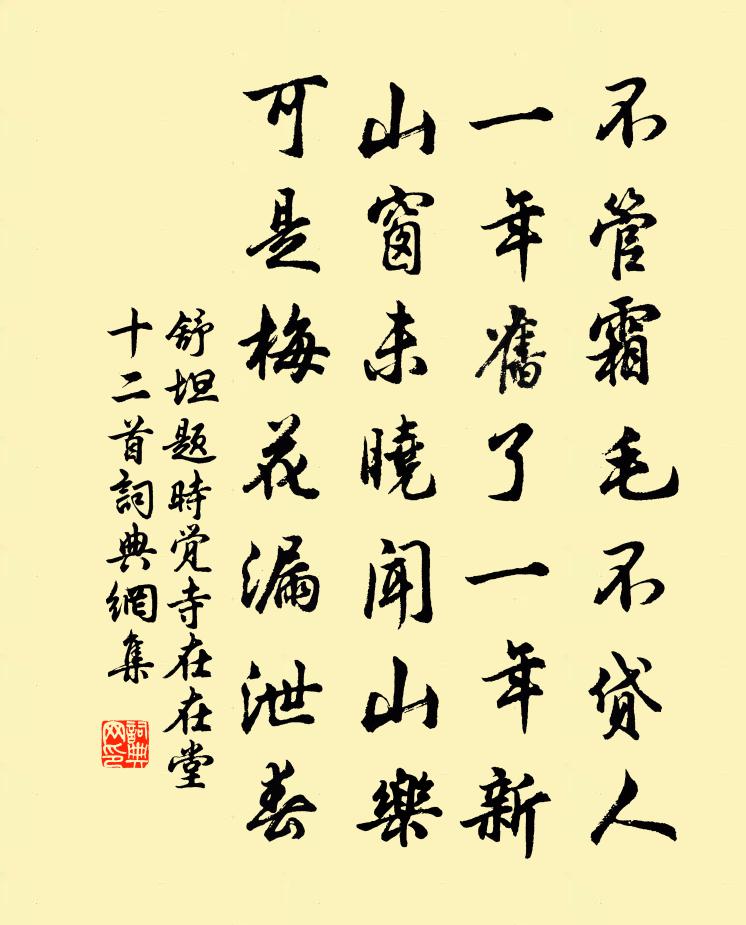 不管霜毛不贷人
一年舊了一年新
山窗未曉聞山樂
可是梅花漏泄春
舒坦题時觉寺在在堂
十二首詞典網集
詞典網印